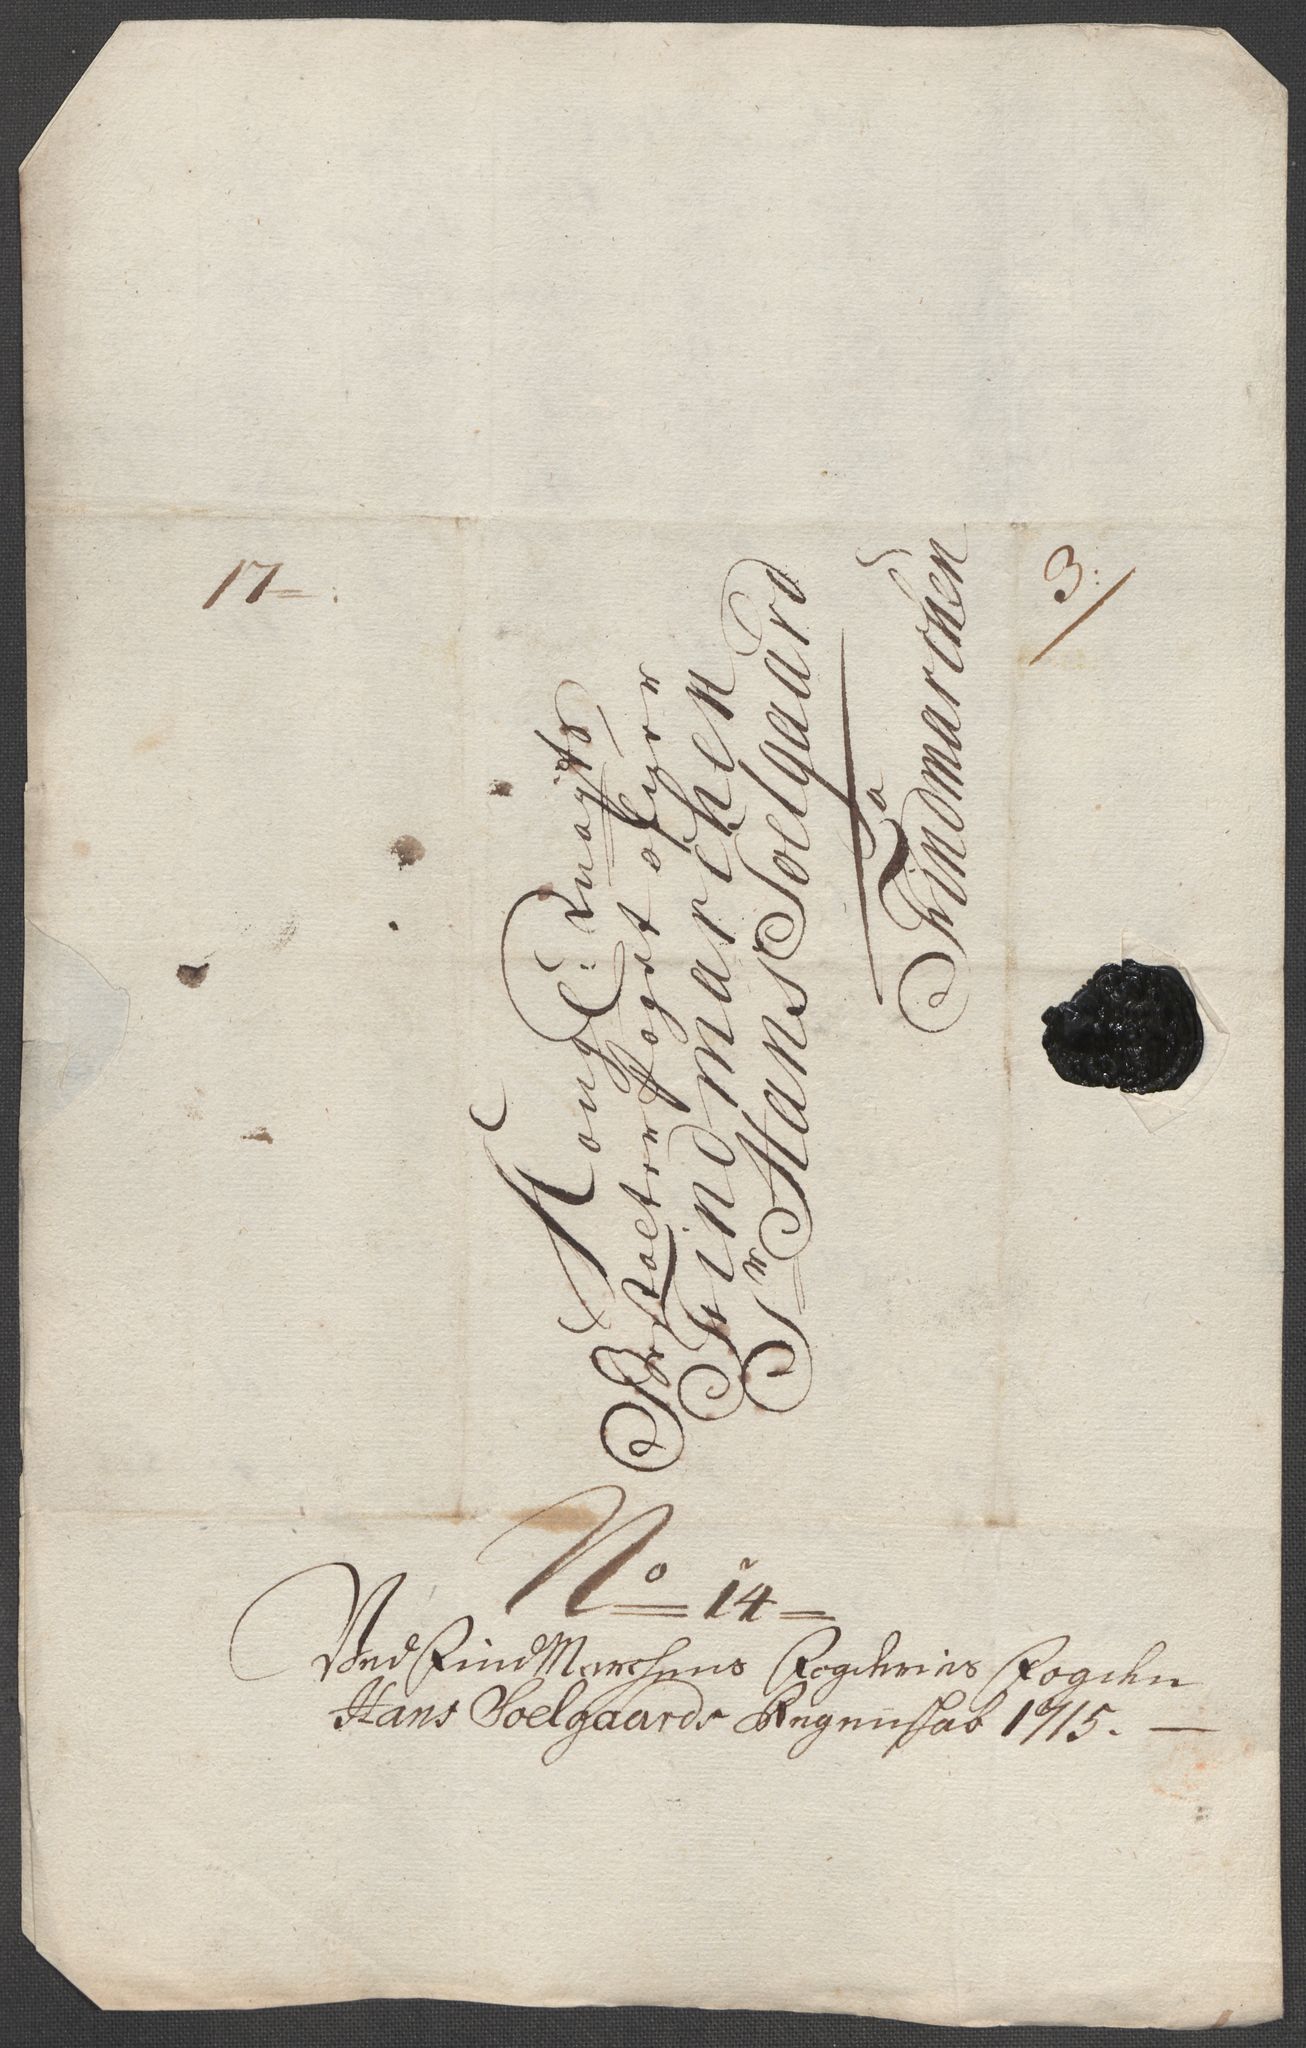 17
3:
Kongl: Mayts
Velbetroede Foget ofver
Findmarchen
Sr Hans Soelgaard
a
Findmarchen
No 14
Ved FindMarchens Fogderies Fogden
Hans Soelgaards Regenskab 1715.